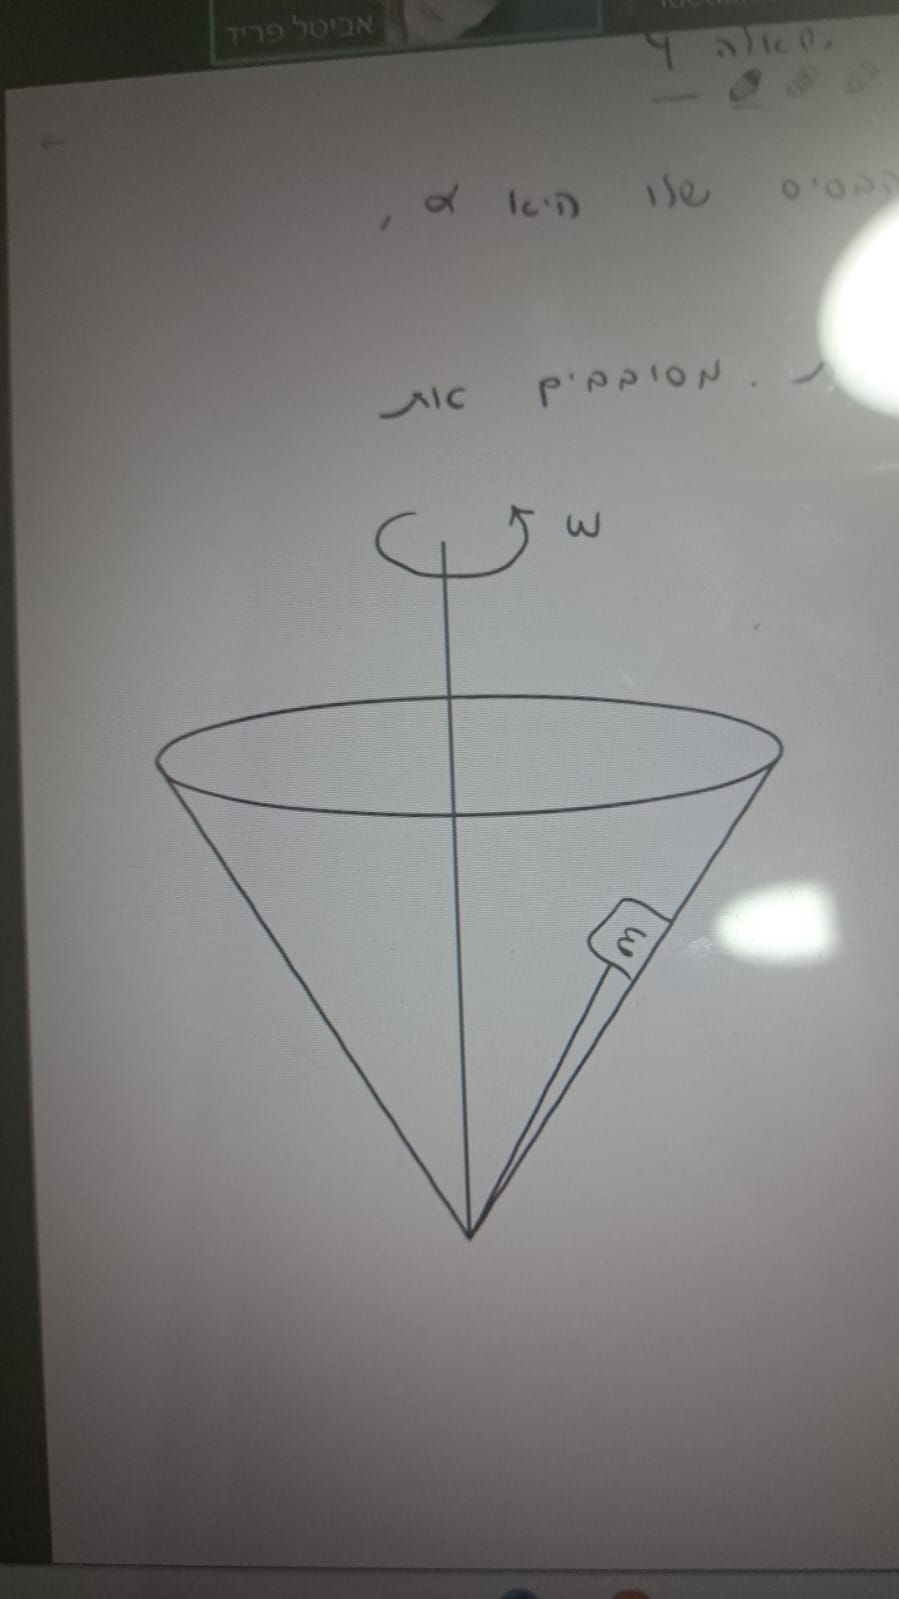 אביטל פריד
שאלה 4
הבסיס שלו היא α,
מסובבים את
ω
m